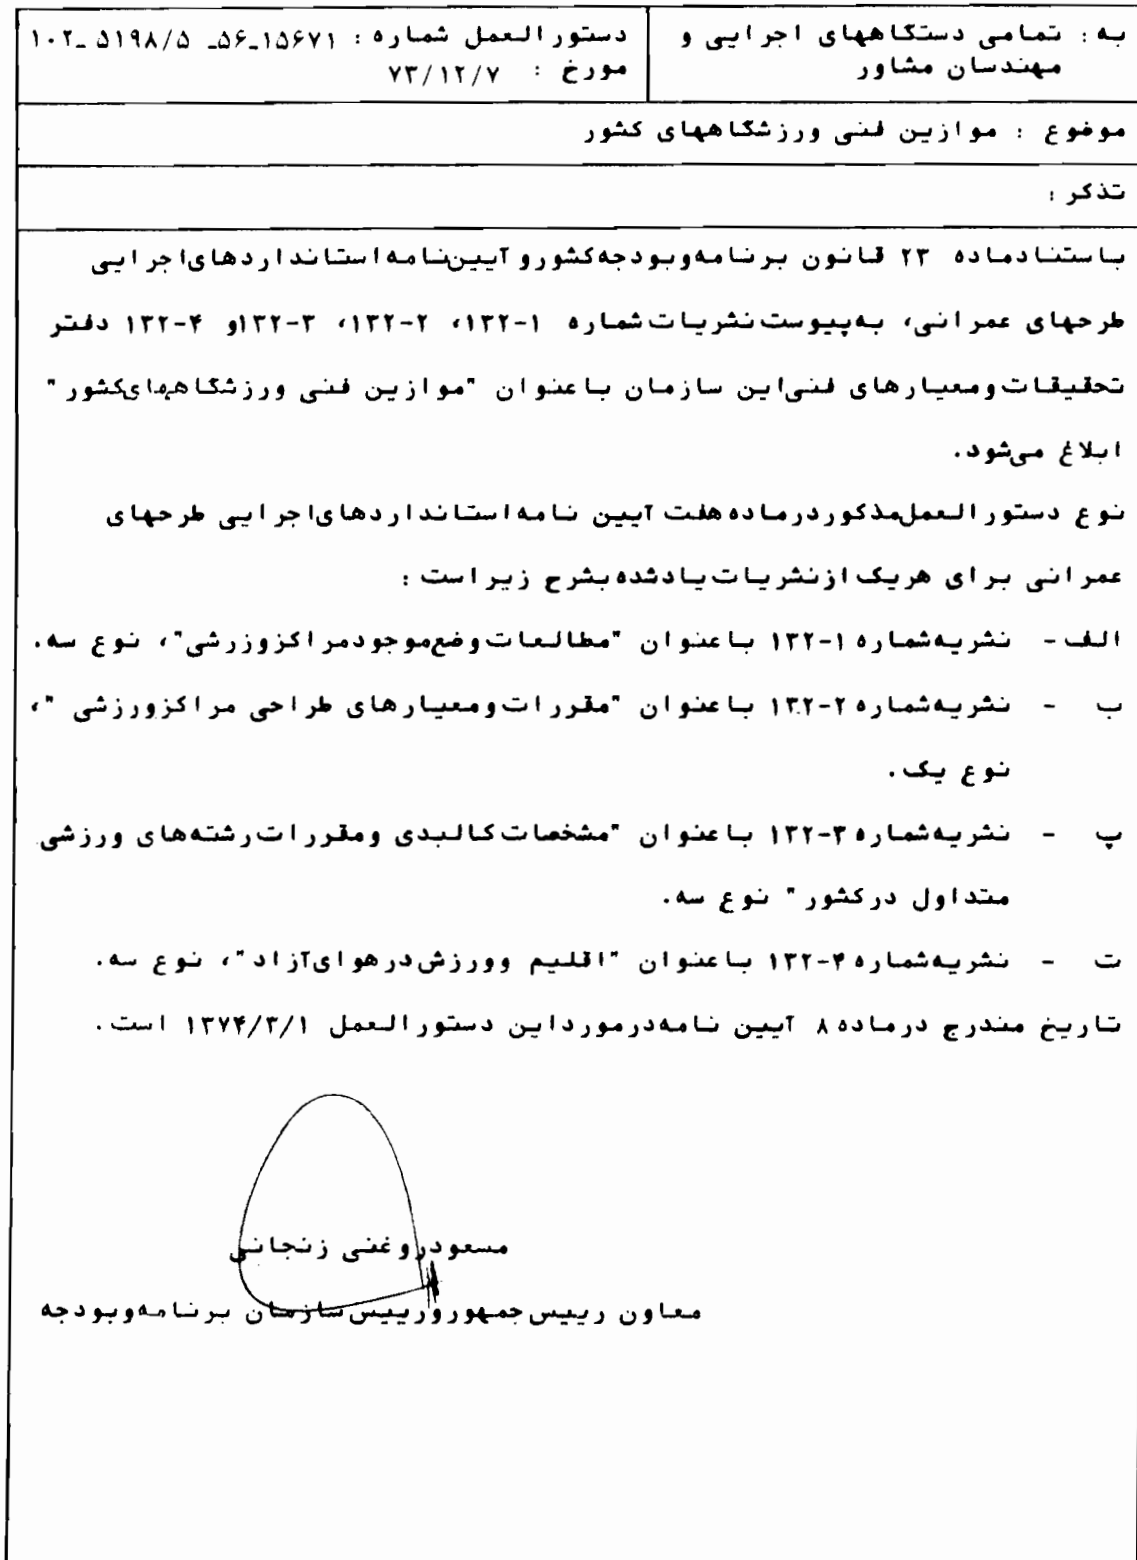 به : تمامی دستگاههای اجرایی و
مهندسان مشاور
دستورالعمل شماره : ۱۵۶۷۱_۵۶_ ۵۱۹۸/۵ _۱۰۲
مورخ : ۷۳/۱۲/۷
موضوع : موازین فنی ورزشگاههای کشور
تذکر :
باستنادماده ۲۳ قانون برنامه‌وبودجه‌کشورو آیین‌نامه‌استانداردهای‌اجرایی
طرحهای عمرانی، به‌پیوست‌نشریات‌شماره ۱-۱۳۲، ۲-۱۳۲، ۳-۱۳۲و ۴-۱۳۲ دفتر
تحقیقات‌ومعیارهای فنی‌این سازمان باعنوان "موازین فنی ورزشگاههای‌کشور "
ابلاغ می‌شود.
نوع دستورالعمل‌مذکوردرماده‌هفت آیین نامه‌استانداردهای‌اجرایی طرحهای
عمرانی برای هریک‌ازنشریات‌یادشده‌بشرح زیراست :
الف - نشریه‌شماره ۱-۱۳۲ باعنوان "مطالعات‌وضع‌موجودمراکزوزرشی"، نوع سه.
ب - نشریه‌شماره ۲-۱۳۲ باعنوان "مقررات‌ومعیارهای طراحی مراکزورزشی "،
نوع یک.
پ - نشریه‌شماره ۳-۱۳۲ باعنوان "مشخصات‌کالبدی ومقررات‌رشته‌های ورزشی
متداول درکشور" نوع سه.
ت - نشریه‌شماره ۴-۱۳۲ باعنوان "اقلیم وورزش‌درهوای‌آزاد"، نوع سه.
تاریخ مندرج درماده ۸ آیین نامه‌درمورداین دستورالعمل ۱۳۷۴/۳/۱ است.
مسعودروغنی زنجانی
معاون رییس‌جمهورورییس‌سازمان برنامه‌وبودجه